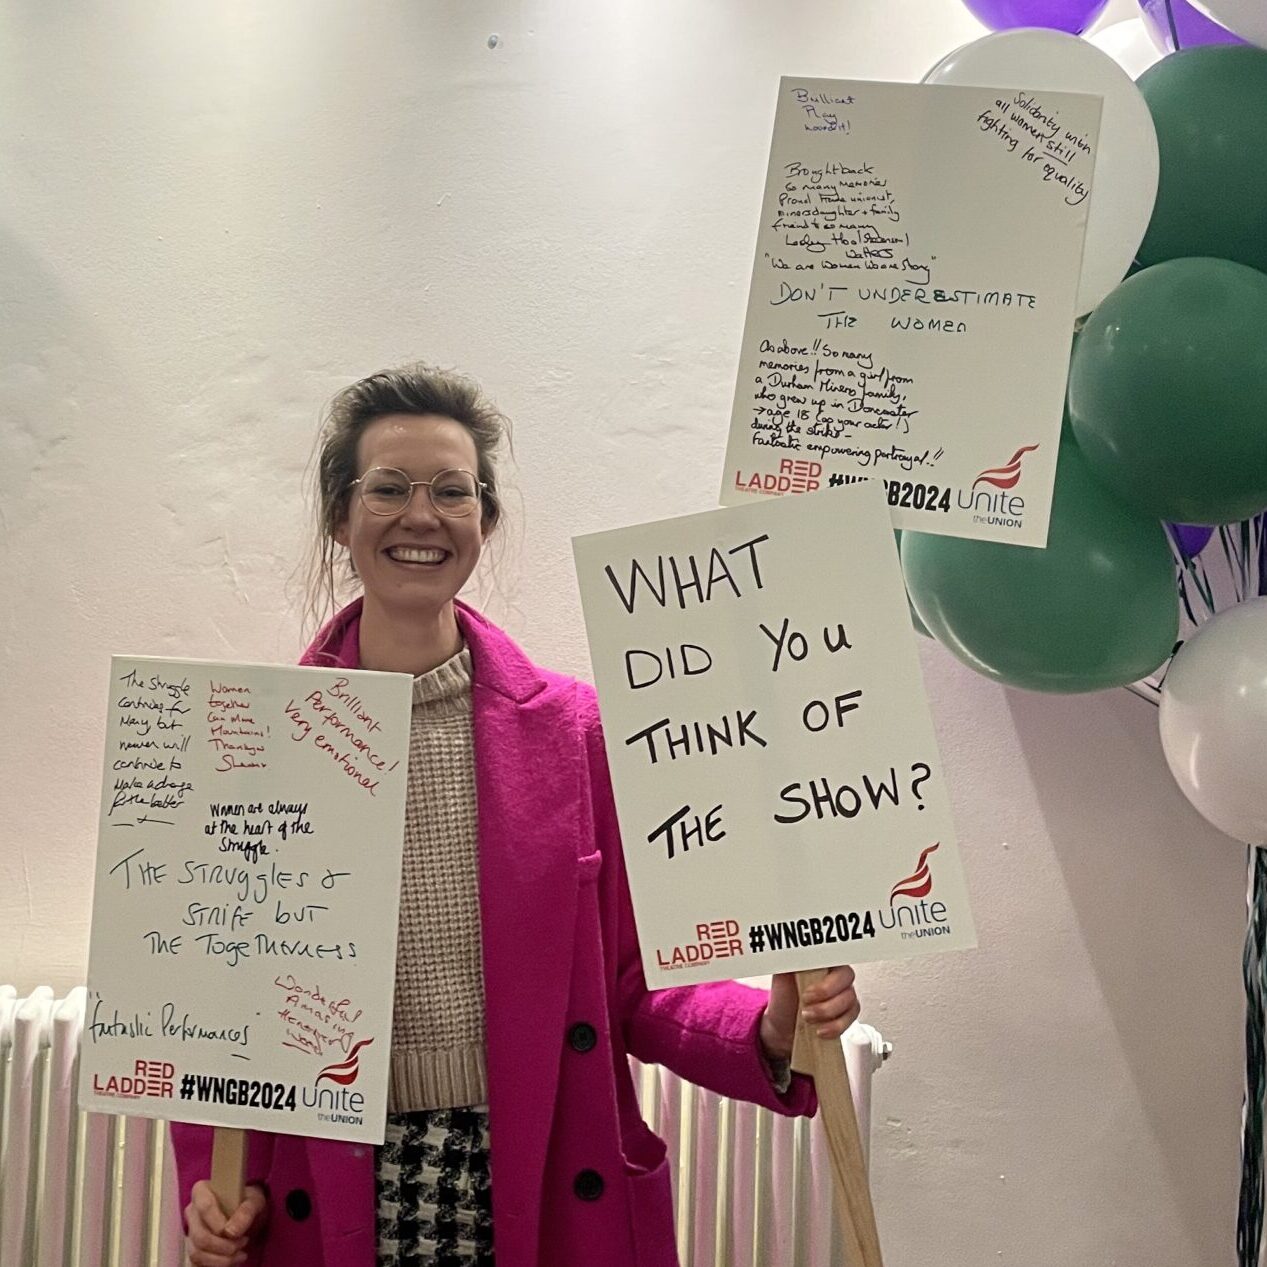 Brilliant
Play
Loved it!
Solidarity with
all women still
fighting for equality
Brought back
so many memories
Proud trade unionist,
miners daughter + family
friend to so many
Lesley
"We are Women We are Strong"
DON'T UNDERESTIMATE
THE WOMEN
As above!! So many
memories from a girl from
a Durham Miners family,
who grew up in Doncaster
→ age 18 (as your actor!)
during the strike –
fantastic empowering portrayal!!
RED
LADDER
THEATRE COMPANY
#WNGB2024
unite
the UNION
WHAT
DID YOU
THINK OF
THE SHOW?
RED
LADDER
THEATRE COMPANY
#WNGB2024
unite
the UNION
The struggle
continues for
Many but
women will
continue to
Make a change
for the better
Women
together
Can Move
Mountains!
Thankyou
Brilliant
Performance!
Very emotional
Women are always
at the heart of the
struggle.
THE STRUGGLES &
STRIFE BUT
THE TOGETHERNESS
"fantastic Performances"
Wonderful
Amazing
RED
LADDER
THEATRE COMPANY
#WNGB2024
unite
the UNION